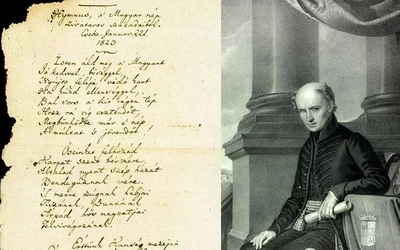 Hymnus, a' Magyar nép
zivataros századaiból.
Cseke, Januar. 22d.
1823
Isten áld meg a' Magyart
Jó kedvel, bőséggel,
Nyújts feléje védő kart
Ha küzd ellenséggel;
Bal sors a' kit régen tép
Hozz rá víg esztendőt,
Megbűnhödte már e' nép
A' multat 's jövendőt!
Őseinket felhozád
Kárpát szent bérczére,
Általad nyert szép hazát
Bendegúznak vére.
'S merre zúgnak habjai
Tiszának, Dunának,
Árpád hős magzatjai
Felvirágozának.
Értünk Kunság mezején